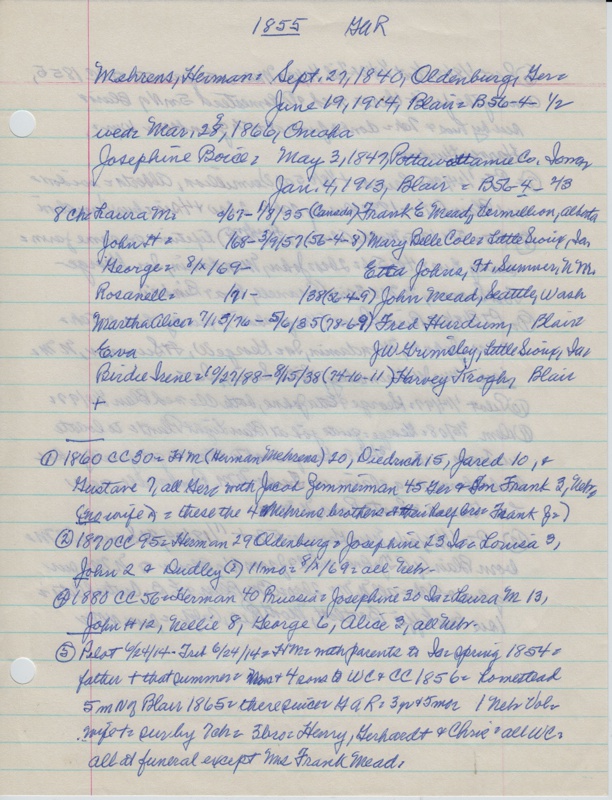 1855 GAR
Mehrens, Herman = Sept. 27, 1840, Oldenburg, Ger =
June 19, 1914, Blair = B56-4- 1/2
wed = Mar. 28, 1866, Omaha
Josephine Boice = May 3, 1847, Pottawattamie Co. Iowa
Jan. 4, 1913, Blair = B56-4- 2/3
8 ch = Laura M. /67- 1/8/35 (Canada) Frank E Mead, Vermillion, Alberta
John H = /68- 3/9/57 (56-4-8) Mary Belle Cole = Little Sioux, Ia.
George = 8/x/69- Etta Johns, Ft. Sumner, N.M.
Rosanell = /71- /38 (56-4-9) John Mead, Seattle, Wash
Martha Alice = 7/13/76 - 5/6/35 (78-6-9) Fred Hurdum, Blair
Eva J W Grimsley, Little Sioux, Ia
Birdie Irene = 10/27/88 - 8/15/38 (74-10-11) Harvey Krogh, Blair
+
① 1860 CC 30 = HM (Herman Mehrens) 20, Diedrich 15, Jared 10, &
Gustave 7, all Ger = with Jacob Zimmerman 45 Ger & Son Frank 3, Nebr
wife = these the 4 Mehrens brothers & their half bro = Frank Z =)
② 1870 CC 95 = Herman 29 Oldenburg = Josephine 23 Ia = Louisa 3,
John 2 & Dudley (?) 11mo = 8/x/69 = all Nebr-
1880 CC 56 = Herman 40 Prussia = Josephine 30 Ia = Laura M 13,
John H 12, Nellie 8, George 6, Alice 3, all Nebr-
⑤ Pilot 6/24/14 - Trib 6/24/14 = HM = with parents to Ia = spring 1854 =
father + that summer = Mrs + 4 sons to WC & CC 1856 = homestead
5 m N of Blair 1865 = there since = GAR = 3yr & 5mo 1 Nebr Vol =
wife + = sur by 7 ch = 3 bro = Henry, Gerhardt & Chris = all WC =
all at funeral except Mrs Frank Mead.